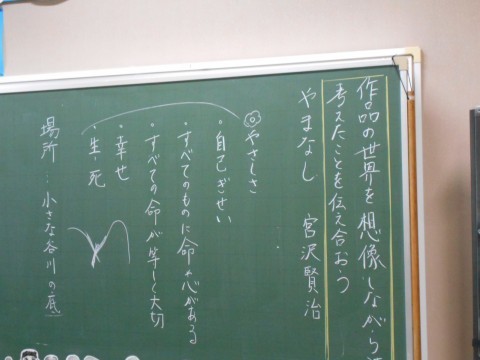 作品の世界を想像しながら
考えたことを伝え合おう
やまなし 宮沢賢治
やさしさ
・自己ぎせい
・すべてのものに命や心がある
・すべての命が等しく大切
・幸せ
・生・死
場所…小さな谷川の底